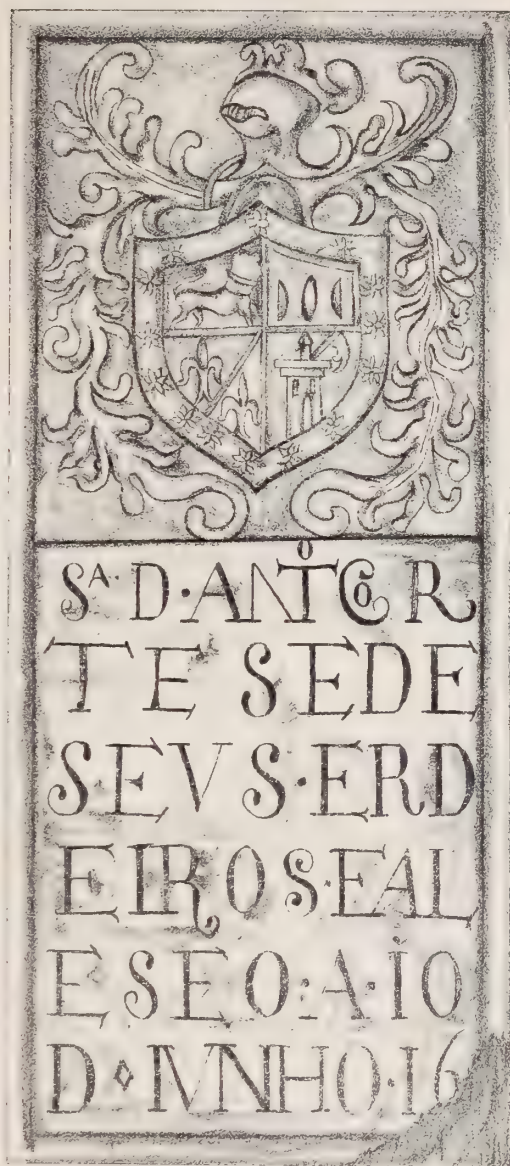 SA· D·ANTº CoR
TE SEDE
SEVS·ERD
EIROS·EAL
ESEO:A·IO
D◊IVNHO·16